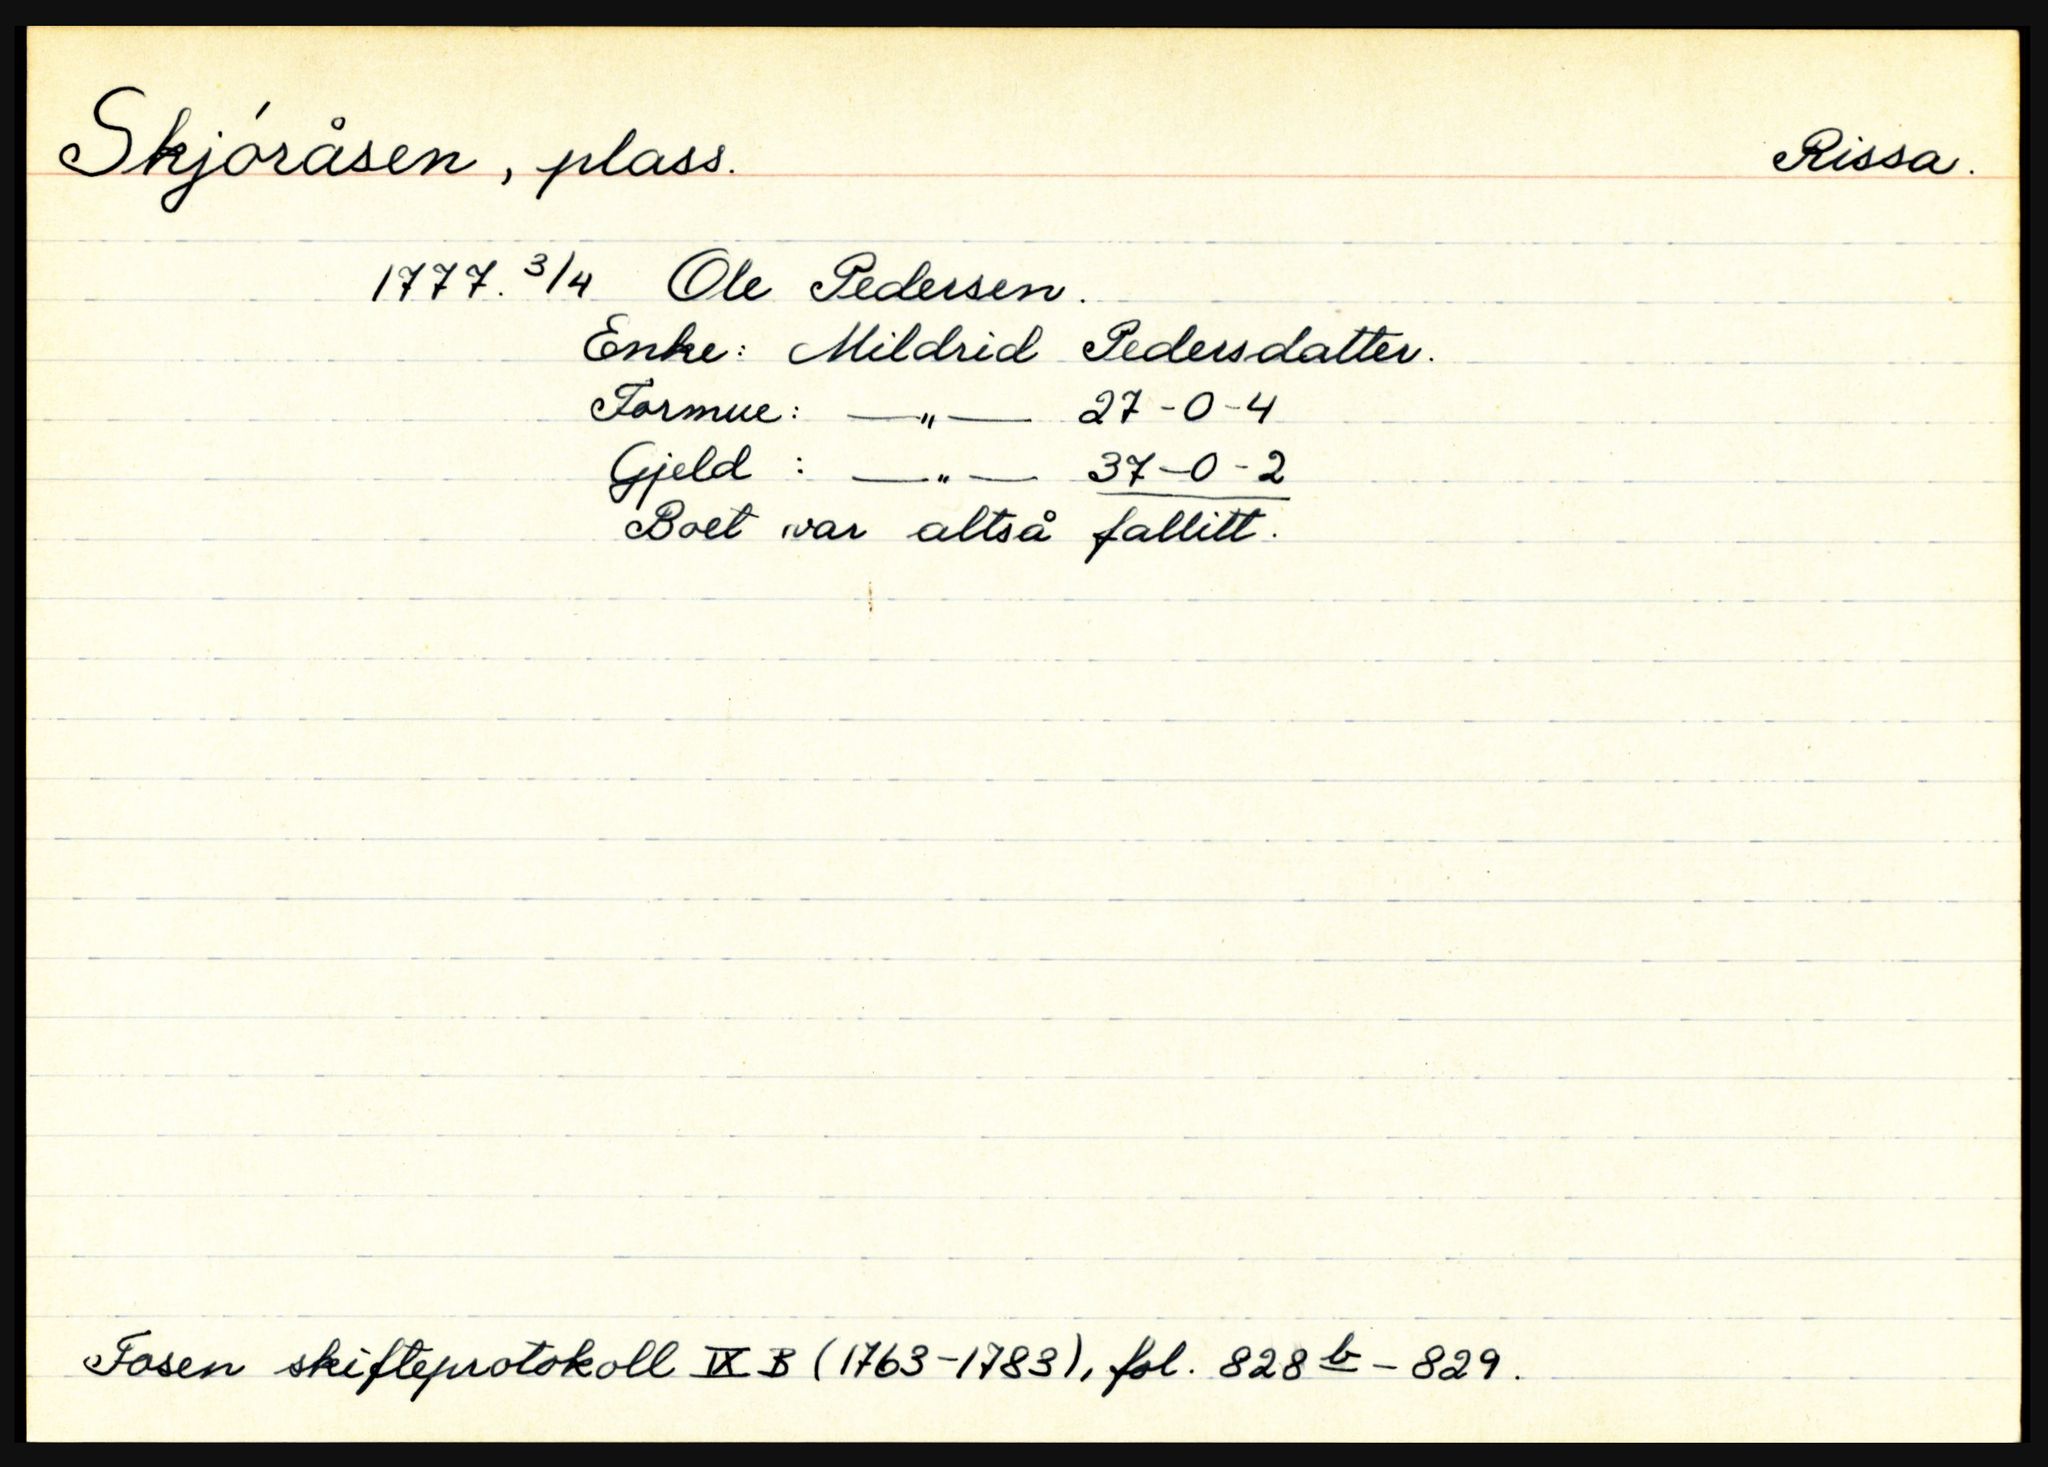 Skjóråsen, plass. Rissa.
1777. 3/4 Ole Pedersen.
Enke: Mildrid Pedersdatter.
Formue: —„— 27-0-4
Gjeld : —„— 37-0-2
Boet var altså fallitt.
Fosen skifteprotokoll IX B (1763-1783), fol. 828 b - 829.